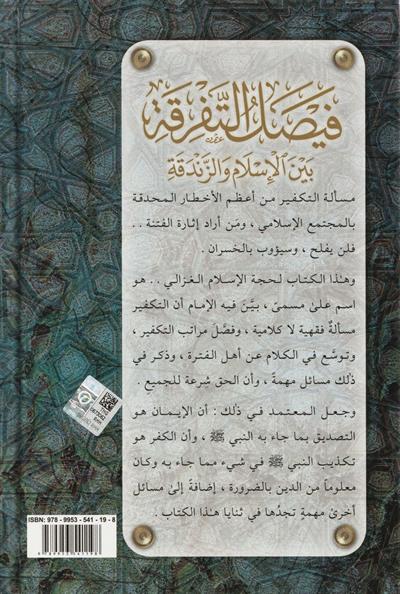 فيصل التفرقة
بين الإسلام والزندقة
مسألة التكفير من أعظم الأخطار المحدقة
بالمجتمع الإسلامي ، ومَن أراد إثارة الفتنة . .
فلن يفلح ، وسيؤوب بالخسران .
وهٰذا الكتاب لحجة الإسلام الغزالي . . هو
اسم علىٰ مسمىً ، بيَّن فيه الإمام أن التكفير
مسألةٌ فقهية لا كلامية ، وفصَّل مراتب التكفير ،
وتوسَّع في الكلام عن أهل الفترة ، وذكر في
ذٰلك مسائل مهمةً ، وأن الحق شِرعة للجميع .
وجعل المعتمد في ذٰلك : أن الإيمان هو
التصديق بما جاء به النبي ﷺ ، وأن الكفر هو
تكذيب النبي ﷺ في شيء مما جاء به وكان
معلوماً من الدين بالضرورة ، إضافةً إلىٰ مسائل
أخرىٰ مهمةٍ تجدُها في ثنايا هٰذا الكتاب .
ISBN: 978 - 9953 - 541 - 19 - 8